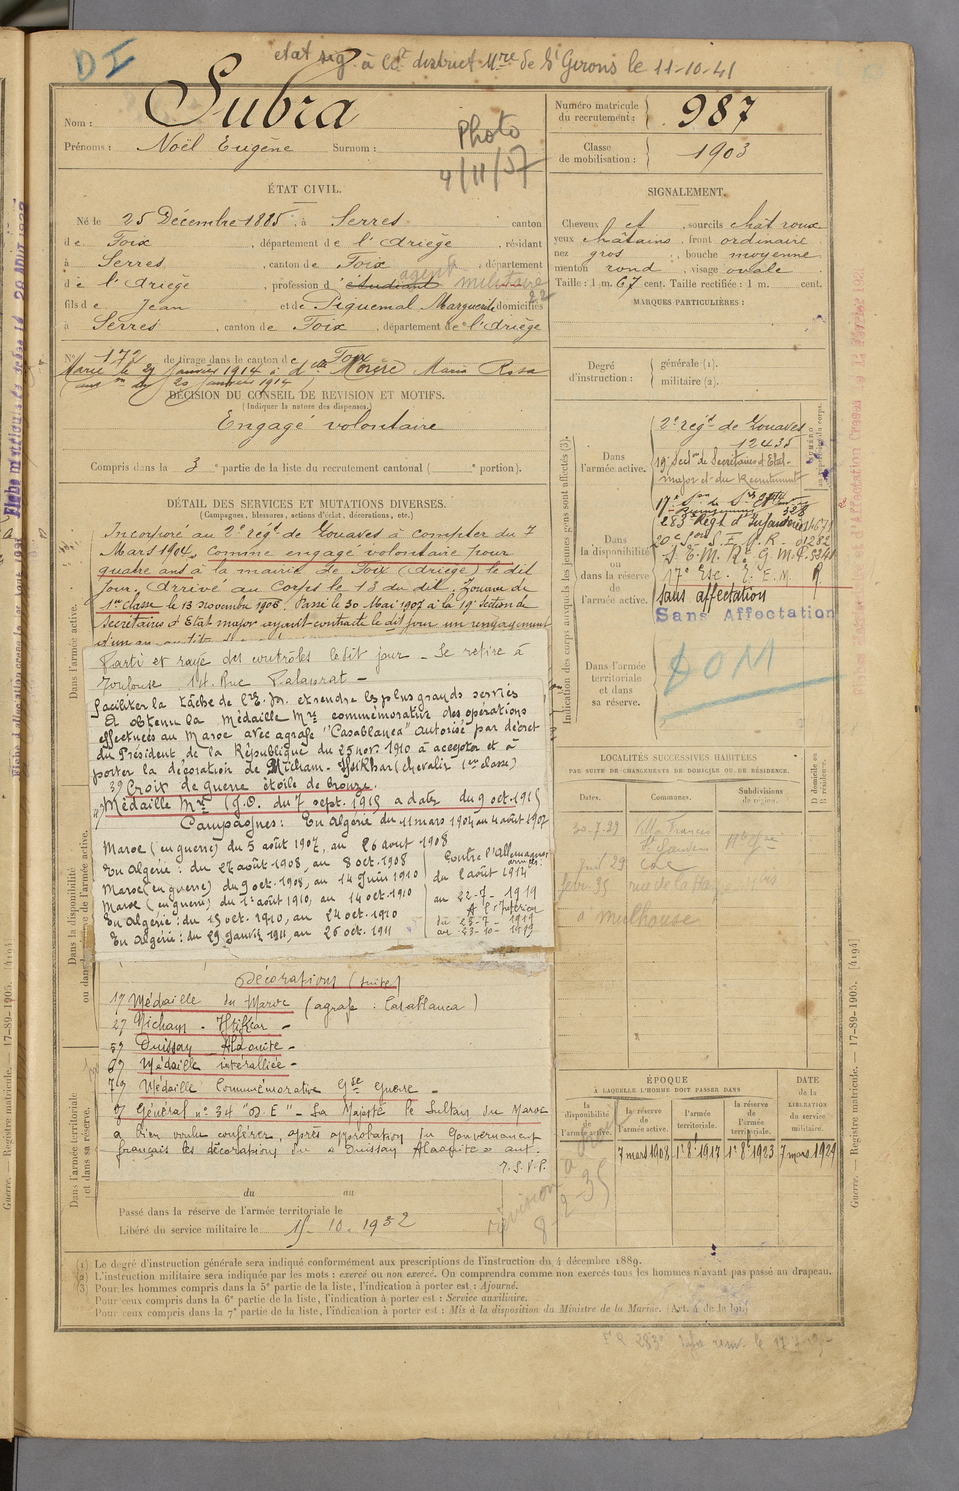 DI
etat sig. à Ct district Mre de St Girons le 11-10-41
Nom : Subra
Photo
Prénoms : Noël Eugène Surnom :
4/11/37
Numéro matricule du recrutement : 987
Classe de mobilisation : 1903
ÉTAT CIVIL.
Né le 25 Décembre 1885, à Serres canton
de Foix, département de l'Ariège, résidant
à Serres, canton de Foix, département
de l'Ariège, profession d'étudiant agent militaire
fils de Jean et de Piquemal Marguerite domiciliés
à Serres, canton de Foix, département de l'Ariège
N° 172 de tirage dans le canton de Foix
Marié le 29 janvier 1914 à dlle Maria Rosa
DÉCISION DU CONSEIL DE REVISION ET MOTIFS.
(Indiquer la nature des dispenses.)
Engagé volontaire
Compris dans la 3e partie de la liste du recrutement cantonal ( e portion).
SIGNALEMENT.
Cheveux et, sourcils chât roux
yeux châtains, front ordinaire
nez gros, bouche moyenne
menton rond, visage ovale
Taille : 1 m. 67 cent. Taille rectifiée : 1 m. cent.
MARQUES PARTICULIÈRES :
Degré d'instruction : générale (1).
militaire (2).
DÉTAIL DES SERVICES ET MUTATIONS DIVERSES.
(Campagnes, blessures, actions d'éclat, décorations, etc.)
Incorporé au 2e régt de Zouaves à compter du 7
Mars 1904, comme engagé volontaire pour
quatre ans à la mairie de Foix (Ariège) le dit
jour. Arrivé au Corps le 13 du dit. Zouave de
1re classe le 13 novembre 1906. Passé le 30 Mai 1907 à la 19e Section de
Secrétaires d'Etat major ayant contracté le dit jour un rengagement
Parti et rayé des contrôles ledit jour - Se retire à
Toulouse 14. Rue Palaprat -
faciliter la tâche de l'E.M. et rendre les plus grands services
A obtenu la Médaille Mre commémorative des opérations
effectuées au Maroc avec agrafe "Casablanca" Autorisé par décret
du Président de la République du 25 nov. 1910 à accepter et à
porter la décoration de Nicham-Iftikhar (chevalier 1ere classe)
3°) Croix de guerre étoile de bronze.
4°) Médaille Mre (J.O. du 7 sept. 1915 à dater du 9 oct. 1915
Campagnes : En Algérie, du 11 mars 1904 au 4 août 1907
Maroc (en guerre) du 5 août 1907, au 26 août 1908
En Algérie : du 27 août 1908, au 8 oct. 1908
Maroc (en guerre) du 9 oct. 1908, au 14 Juin 1910
Maroc (en guerre) du 1er août 1910, au 14 oct. 1910
En Algérie : du 15 oct. 1910, au 24 oct. 1910
En Algérie : du 29 Janvier 1911, au 26 oct. 1911
Contre l'Allemagne
du 2 août 1914
au 22-7-1919
A l'Intérieur
du 23-7-1919
au 23-10-1919
Décorations (suite)
1°) Médaille du Maroc (agrafe : Casablanca)
2°) Nicham-Iftikar -
5°) Ouissam Alaouite -
6°) Médaille interalliée -
7°) Médaille Commémorative Gde Guerre -
Général n° 34 "O.E" - Sa Majesté le Sultan du Maroc
a bien voulu conférer, après approbation du Gouvernement
français les décorations du "Ouissam Alaouite" aut.
T.S.V.P.
du au
Passé dans la réserve de l'armée territoriale le
Libéré du service militaire le 15-10-1932
révision 8-2-35
Dans l'armée active.
Dans la disponibilité ou dans la réserve de l'armée active.
Dans l'armée territoriale et dans sa réserve.
Indication des corps auxquels les jeunes gens sont affectés (3).
Dans l'armée active.
2e régt de Zouaves
12435
19e Secton de Secrétaires d'Etat-
major et du Recrutement
Dans la disponibilité ou dans la réserve de l'armée active.
283e Régt d'Infanterie
17e Esc. T.E.M
Sans affectation
Sans Affectation
Dans l'armée territoriale et dans sa réserve.
DOM
LOCALITÉS SUCCESSIVES HABITÉES
PAR SUITE DE CHANGEMENTS DE DOMICILE OU DE RÉSIDENCE.
Dates. Communes. Subdivisions de région. D domicile ou R résidence.
30-7-29 Villa Francis
St Gaudens Hte Gne
févr 35 rue de la
à Mulhouse
ÉPOQUE
À LAQUELLE L'HOMME DOIT PASSER DANS
DATE
DE LA
LIBÉRATION
du service militaire.
la disponibilité de l'armée active.
la réserve de l'armée active.
l'armée territoriale.
la réserve de l'armée territoriale.
7 mars 1908 1er 8bre 1917 1er 8bre 1923 7 mars 1929
(1) Le degré d'instruction générale sera indiqué conformément aux prescriptions de l'instruction du 4 décembre 1889.
(2) L'instruction militaire sera indiquée par les mots : exercé ou non exercé. On comprendra comme non exercés tous les hommes n'ayant pas passé au drapeau.
(3) Pour les hommes compris dans la 5e partie de la liste, l'indication à porter est : Ajourné.
Pour ceux compris dans la 6e partie de la liste, l'indication à porter est : Service auxiliaire.
Pour ceux compris dans la 7e partie de la liste, l'indication à porter est : Mis à la disposition du Ministre de la Marine. (Art. 4 de la loi.)
Guerre. — Registre matricule. — 17-89-1905. [4194]
Guerre. — Registre matricule. — 17-89-1905. [4194]